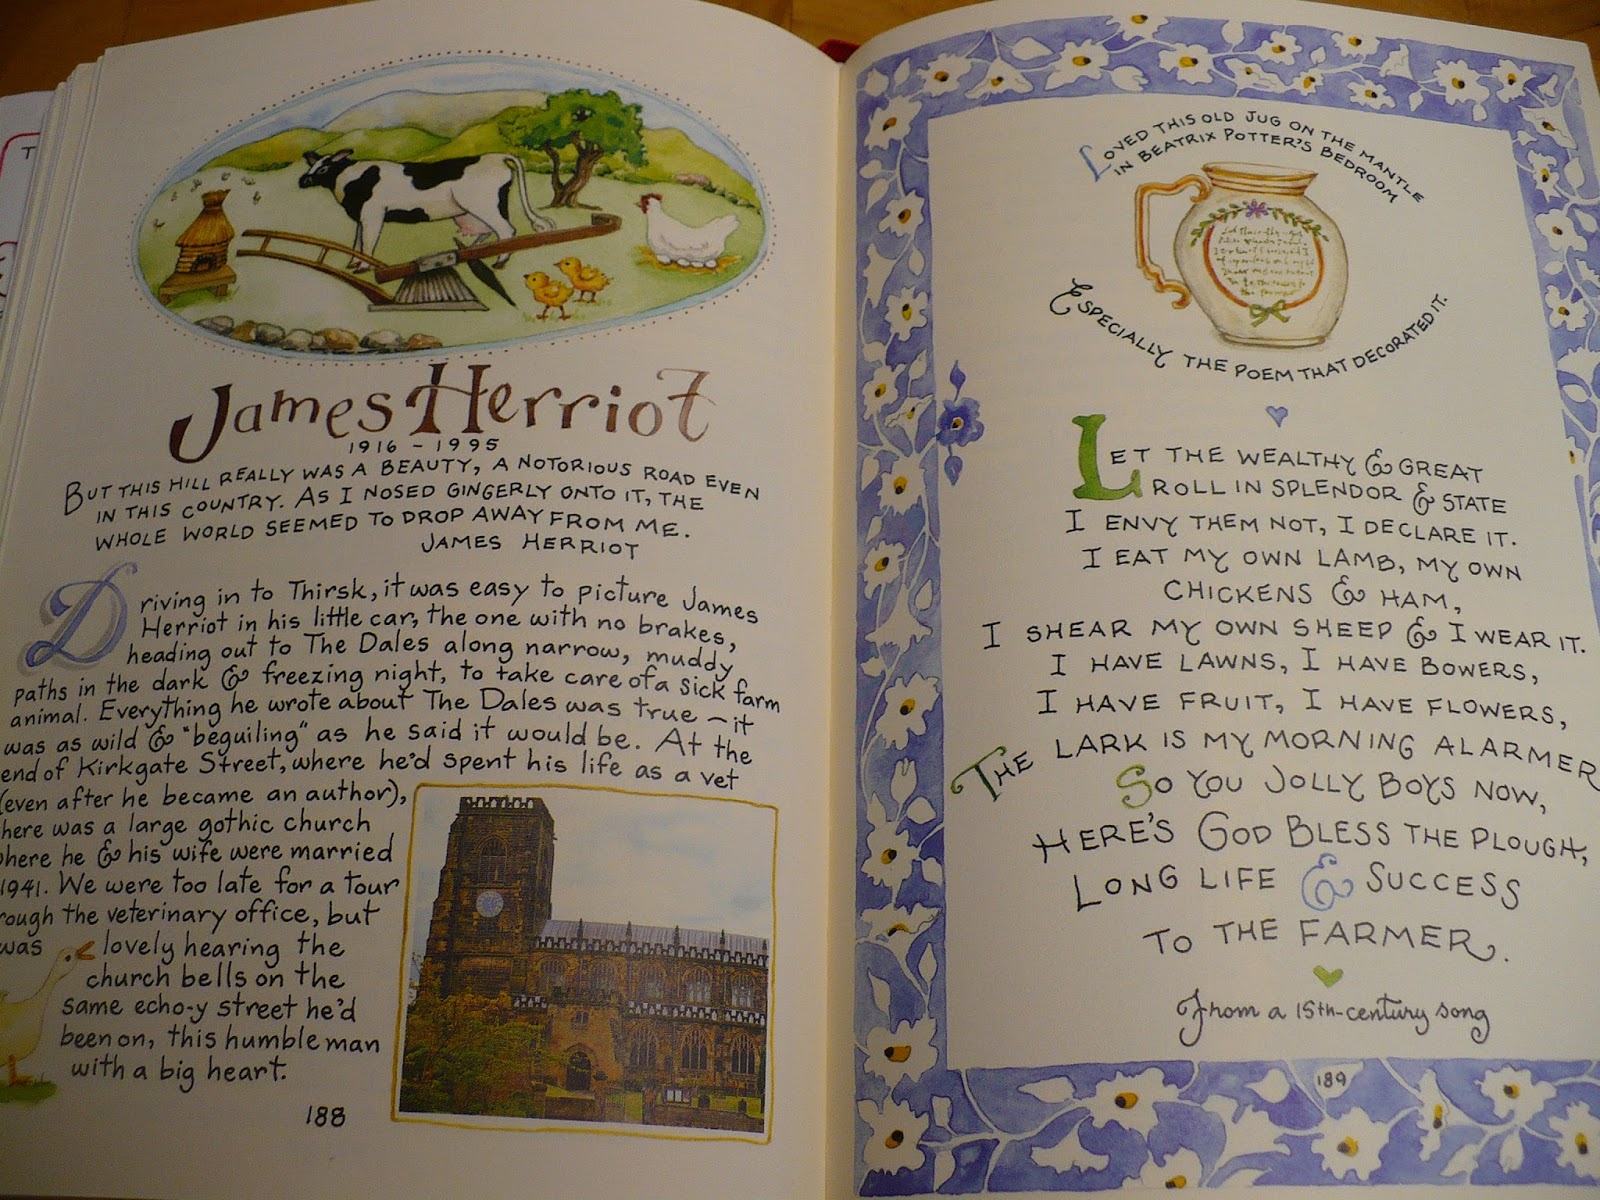 James Herriot
1916 - 1995
BUT THIS HILL REALLY WAS A BEAUTY, A NOTORIOUS ROAD EVEN
IN THIS COUNTRY. AS I NOSED GINGERLY ONTO IT, THE
WHOLE WORLD SEEMED TO DROP AWAY FROM ME.
JAMES HERRIOT
Driving in to Thirsk, it was easy to picture James
Herriot in his little car, the one with no brakes,
heading out to The Dales along narrow, muddy
paths in the dark & freezing night, to take care of a sick farm
animal. Everything he wrote about The Dales was true — it
was as wild & "beguiling" as he said it would be. At the
end of Kirkgate Street, where he'd spent his life as a vet
(even after he became an author),
here was a large gothic church
where he & his wife were married
1941. We were too late for a tour
rough the veterinary office, but
was lovely hearing the
church bells on the
same echo-y street he'd
been on, this humble man
with a big heart.
188
LOVED THIS OLD JUG ON THE MANTLE
IN BEATRIX POTTER'S BEDROOM
ESPECIALLY THE POEM THAT DECORATED IT.
LET THE WEALTHY & GREAT
ROLL IN SPLENDOR & STATE
I ENVY THEM NOT, I DECLARE IT.
I EAT MY OWN LAMB, MY OWN
CHICKENS & HAM,
I SHEAR MY OWN SHEEP & I WEAR IT.
I HAVE LAWNS, I HAVE BOWERS,
I HAVE FRUIT, I HAVE FLOWERS,
THE LARK IS MY MORNING ALARMER
SO YOU JOLLY BOYS NOW,
HERE'S GOD BLESS THE PLOUGH,
LONG LIFE & SUCCESS
TO THE FARMER.
From a 15th-century song
189